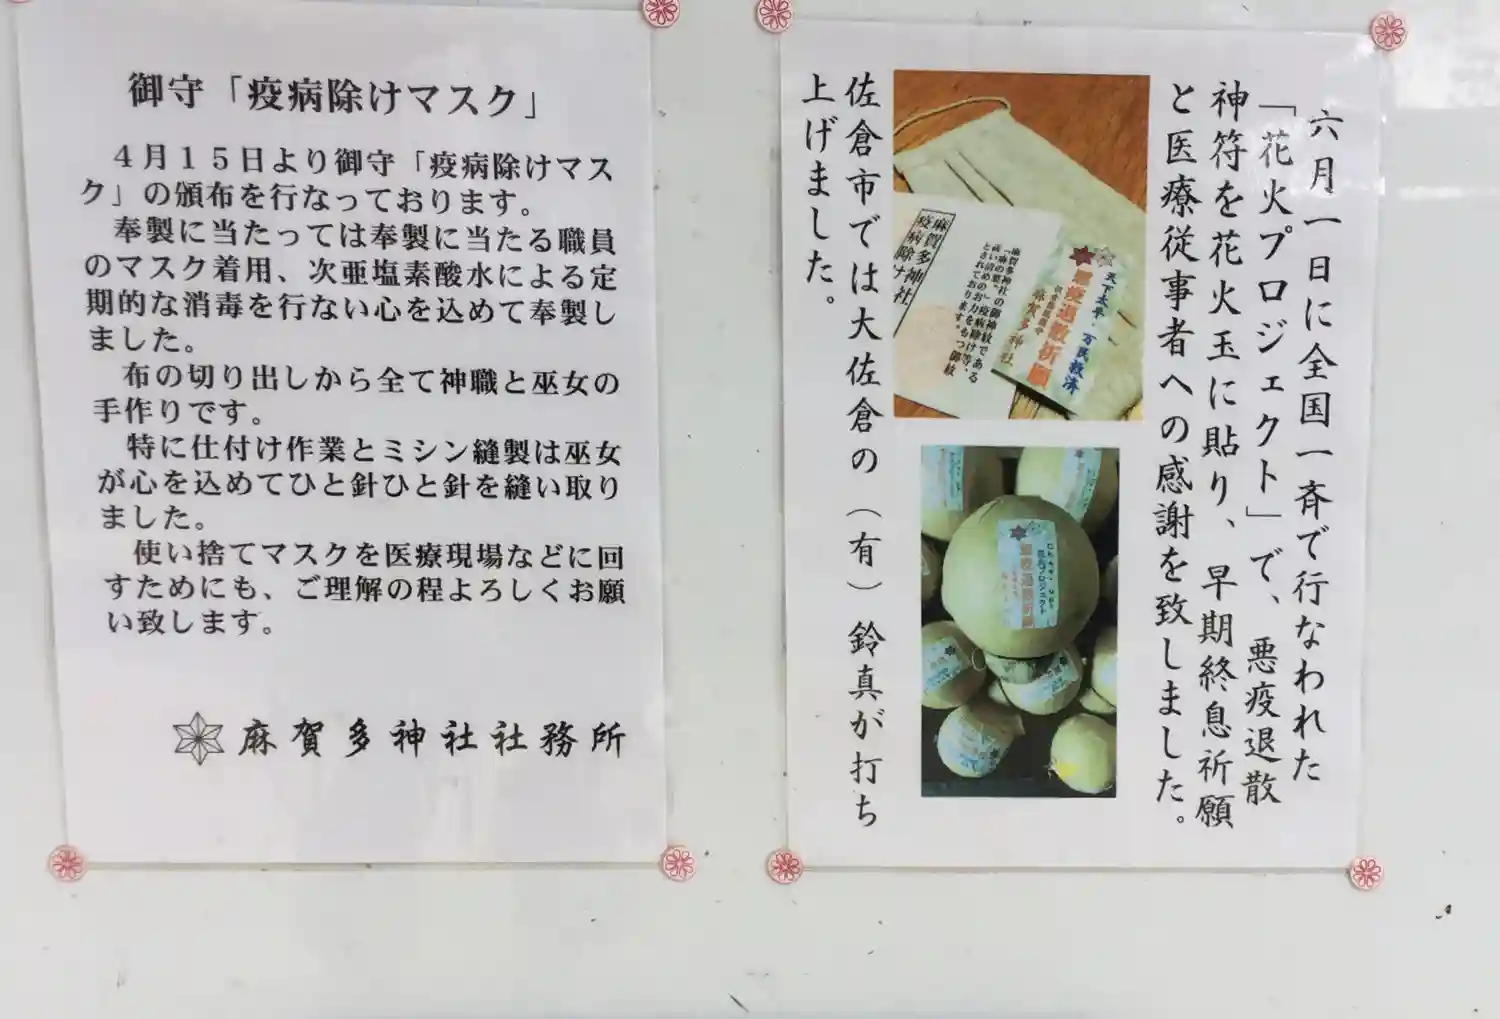 御守「疫病除けマスク」
４月１５日より御守「疫病除けマス
ク」の頒布を行なっております。
奉製に当たっては奉製に当たる職員
のマスク着用、次亜塩素酸水による定
期的な消毒を行ない心を込めて奉製し
ました。
布の切り出しから全て神職と巫女の
手作りです。
特に仕付け作業とミシン縫製は巫女
が心を込めてひと針ひと針を縫い取り
ました。
使い捨てマスクを医療現場などに回
すためにも、ご理解の程よろしくお願
い致します。
麻賀多神社社務所
六月一日に全国一斉で行なわれた
「花火プロジェクト」で、悪疫退散
神符を花火玉に貼り、早期終息祈願
と医療従事者への感謝を致しました。
天下太平・万民救済
悪疫退散祈願
麻賀多神社
麻賀多神社の御神紋である
「麻の葉」疫病除け等、
高い清めのお力をもつ御紋
とされております。
麻賀多神社
疫病除け
花火プロジェクト
佐倉市では大佐倉の（有）鈴真が打ち
上げました。